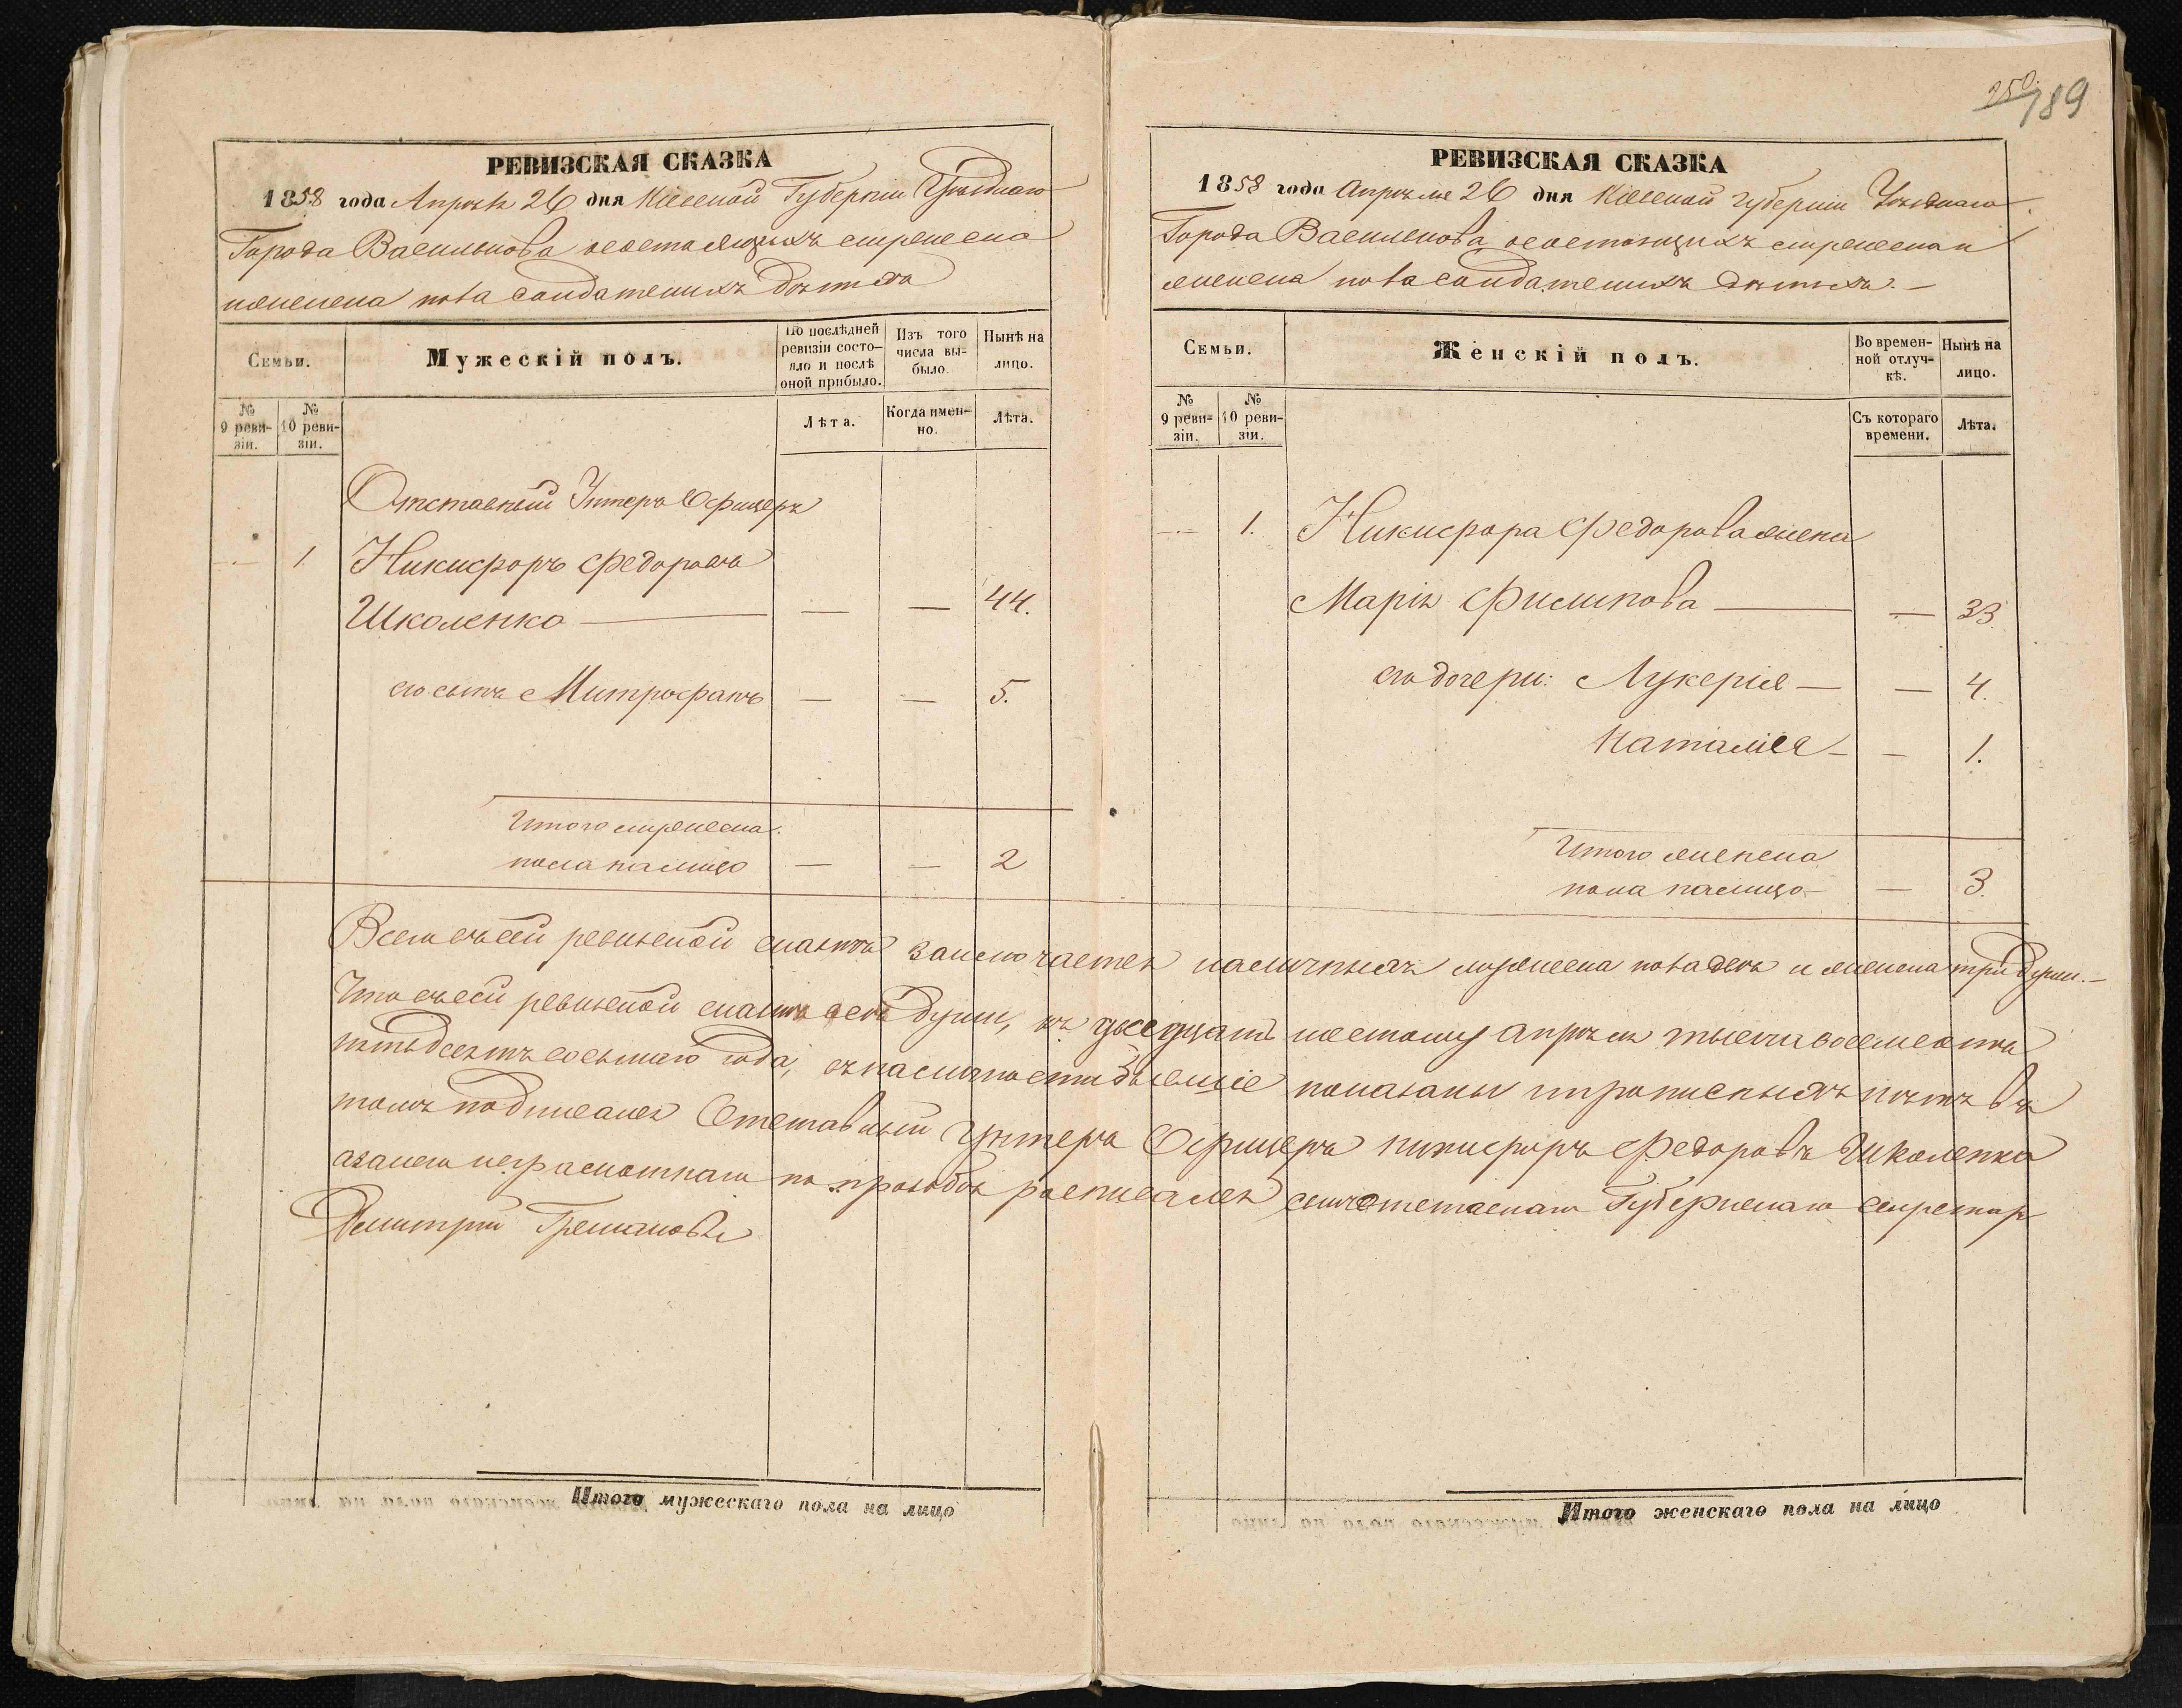 250/189
РЕВИЗСКАЯ СКАЗКА
1858 года Апрѣля 26 дня Кіевской Губерніи Уѣзднаго
Города Василькова о состоящихъ мужеска
и женска пола солдатскихъ дѣтяхъ
Семьи.
Мужескій полъ.
По послѣдней ревизіи состо-яло и послѣ оной прибыло.
Изъ того числа вы-было.
Нынѣ на лицо.
№ 9 реви-зіи.
№ 10 реви-зіи.
Лѣта.
Когда имен-но.
Лѣта.
Отставный Унтеръ Офицеръ
1. Никифоръ Федоровъ
Школенко — — — 44.
его сынъ Митрофанъ — — 5.
Итого мужеска
пола налицо — — 2
РЕВИЗСКАЯ СКАЗКА
1858 года Апрѣля 26 дня Кіевской Губерніи Уѣзднаго
Города Василькова о состоящихъ мужеска и
женска пола солдатскихъ дѣтяхъ. —
Семьи.
Женскій полъ.
Во времен-ной отлуч-кѣ.
Нынѣ на лицо.
№ 9 реви-зіи.
№ 10 реви-зіи.
Съ котораго времени.
Лѣта.
1. Никифора Федорова жена
Марія Филипова — — 33.
его дочери: Лукерія — — 4.
Наталія — — 1.
Итого женска
пола налицо — — 3.
Всего въ сей ревизской сказкѣ заключается наличныхъ мужеска пола двѣ и женска три души. —
Что въ сей ревизской сказкѣ всѣ души, къ двадцать шестому Апрѣля тысяча восемсотъ
пятьдесятъ восьмаго года, въ наличности бывшіе показаны и прописныхъ нѣтъ въ
томъ подписался Отставный Унтеръ Офицеръ Никифоръ Федоровъ Школенко
а за него неграмотнаго по прозьбѣ росписался Губернскаго секретар
Дмитрій
Итого мужескаго пола на лицо
Итого женскаго пола на лицо